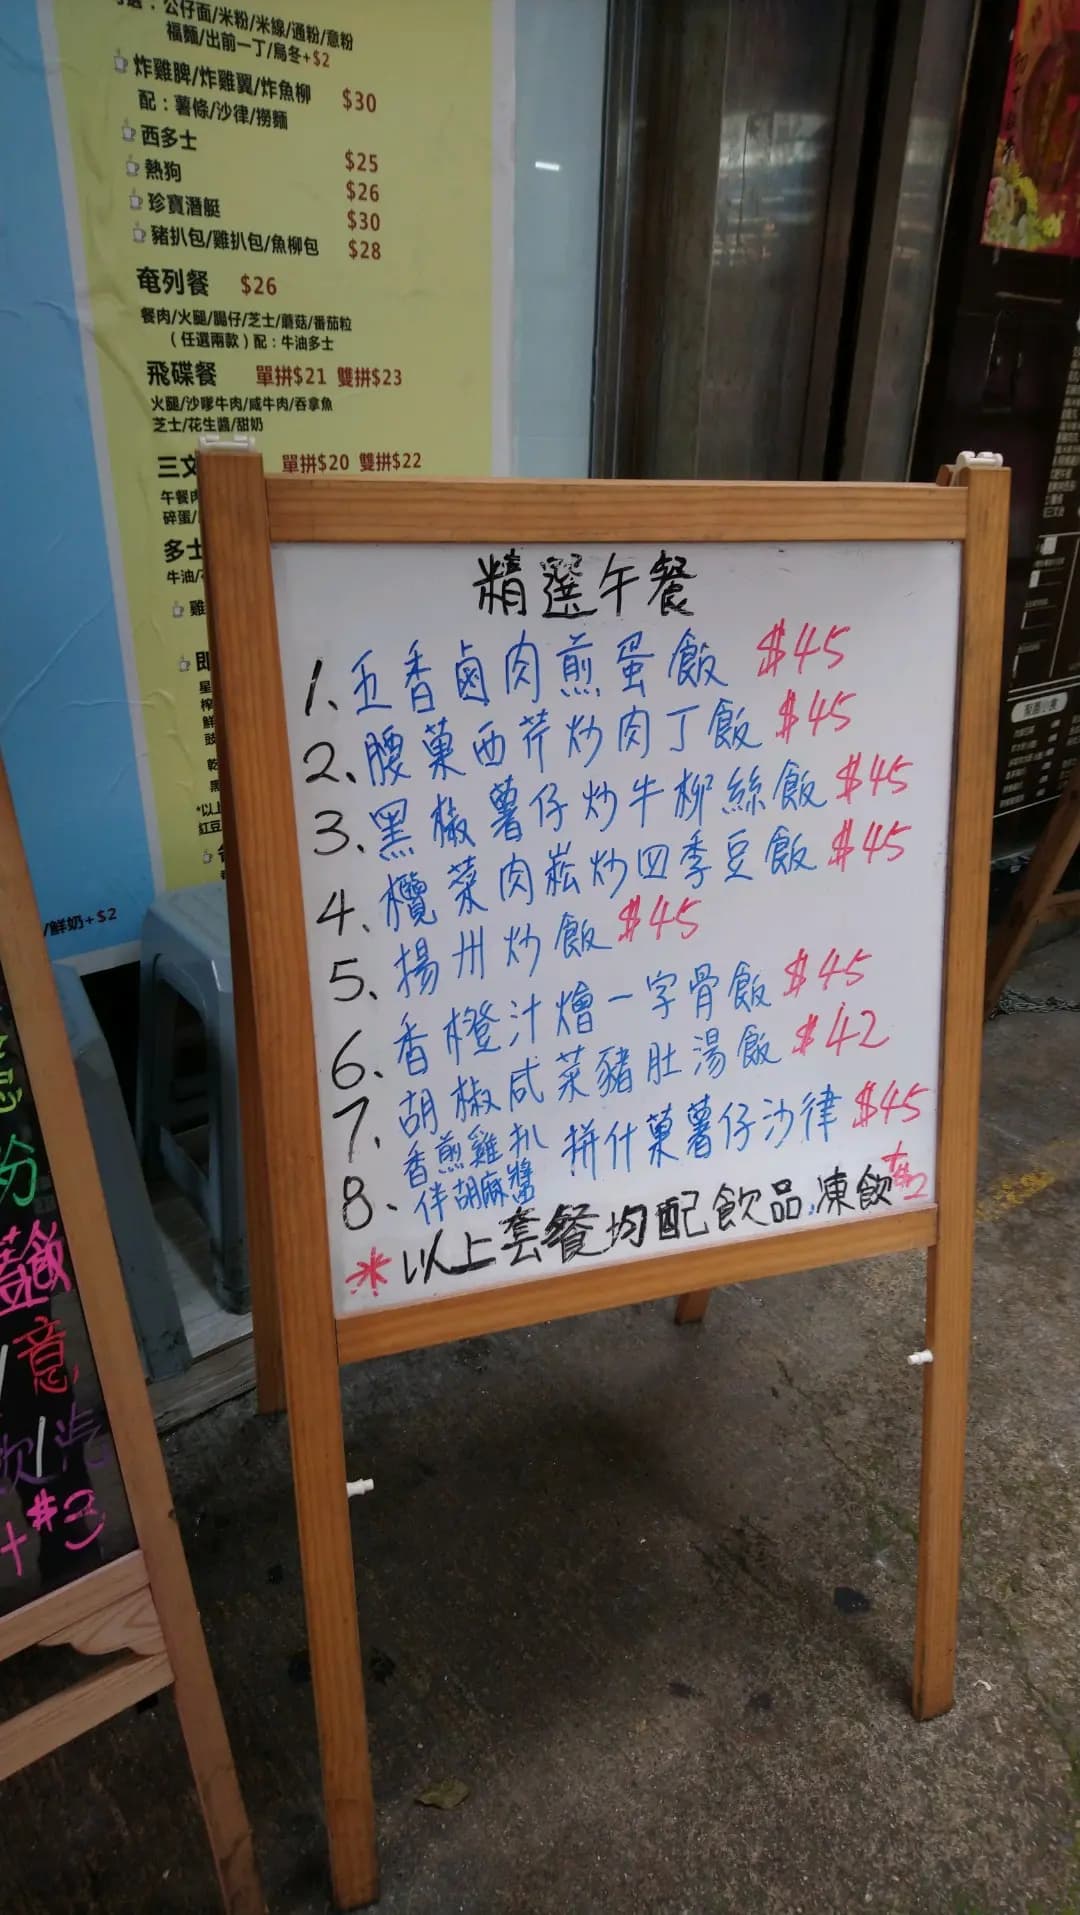 公仔面/米粉/米線/通粉/意粉
福麵/出前一丁/烏冬+$2
炸雞脾/炸雞翼/炸魚柳 $30
配：薯條/沙律/撈麵
西多士 $25
熱狗 $26
珍寶潛艇 $30
豬扒包/雞扒包/魚柳包 $28
奄列餐 $26
餐肉/火腿/腸仔/芝士/蘑菇/番茄粒
（任選兩款）配：牛油多士
飛碟餐 單拼$21 雙拼$23
火腿/沙嗲牛肉/咸牛肉/吞拿魚
芝士/花生醬/甜奶
三文 單拼$20 雙拼$22
午餐肉
碎蛋/
多士
牛油/
雞
即
/鮮奶+$2
精選午餐
1、五香鹵肉煎蛋飯 $45
2、腰菓西芹炒肉丁飯 $45
3、黑椒薯仔炒牛柳絲飯 $45
4、欖菜肉崧炒四季豆飯 $45
5、揚州炒飯 $45
6、香橙汁燴一字骨飯 $45
7、胡椒咸菜豬肚湯飯 $42
8、香煎雞扒伴胡麻醬 拼什菓薯仔沙律 $45
*以上套餐均配飲品.凍飲+$2
意
+$3